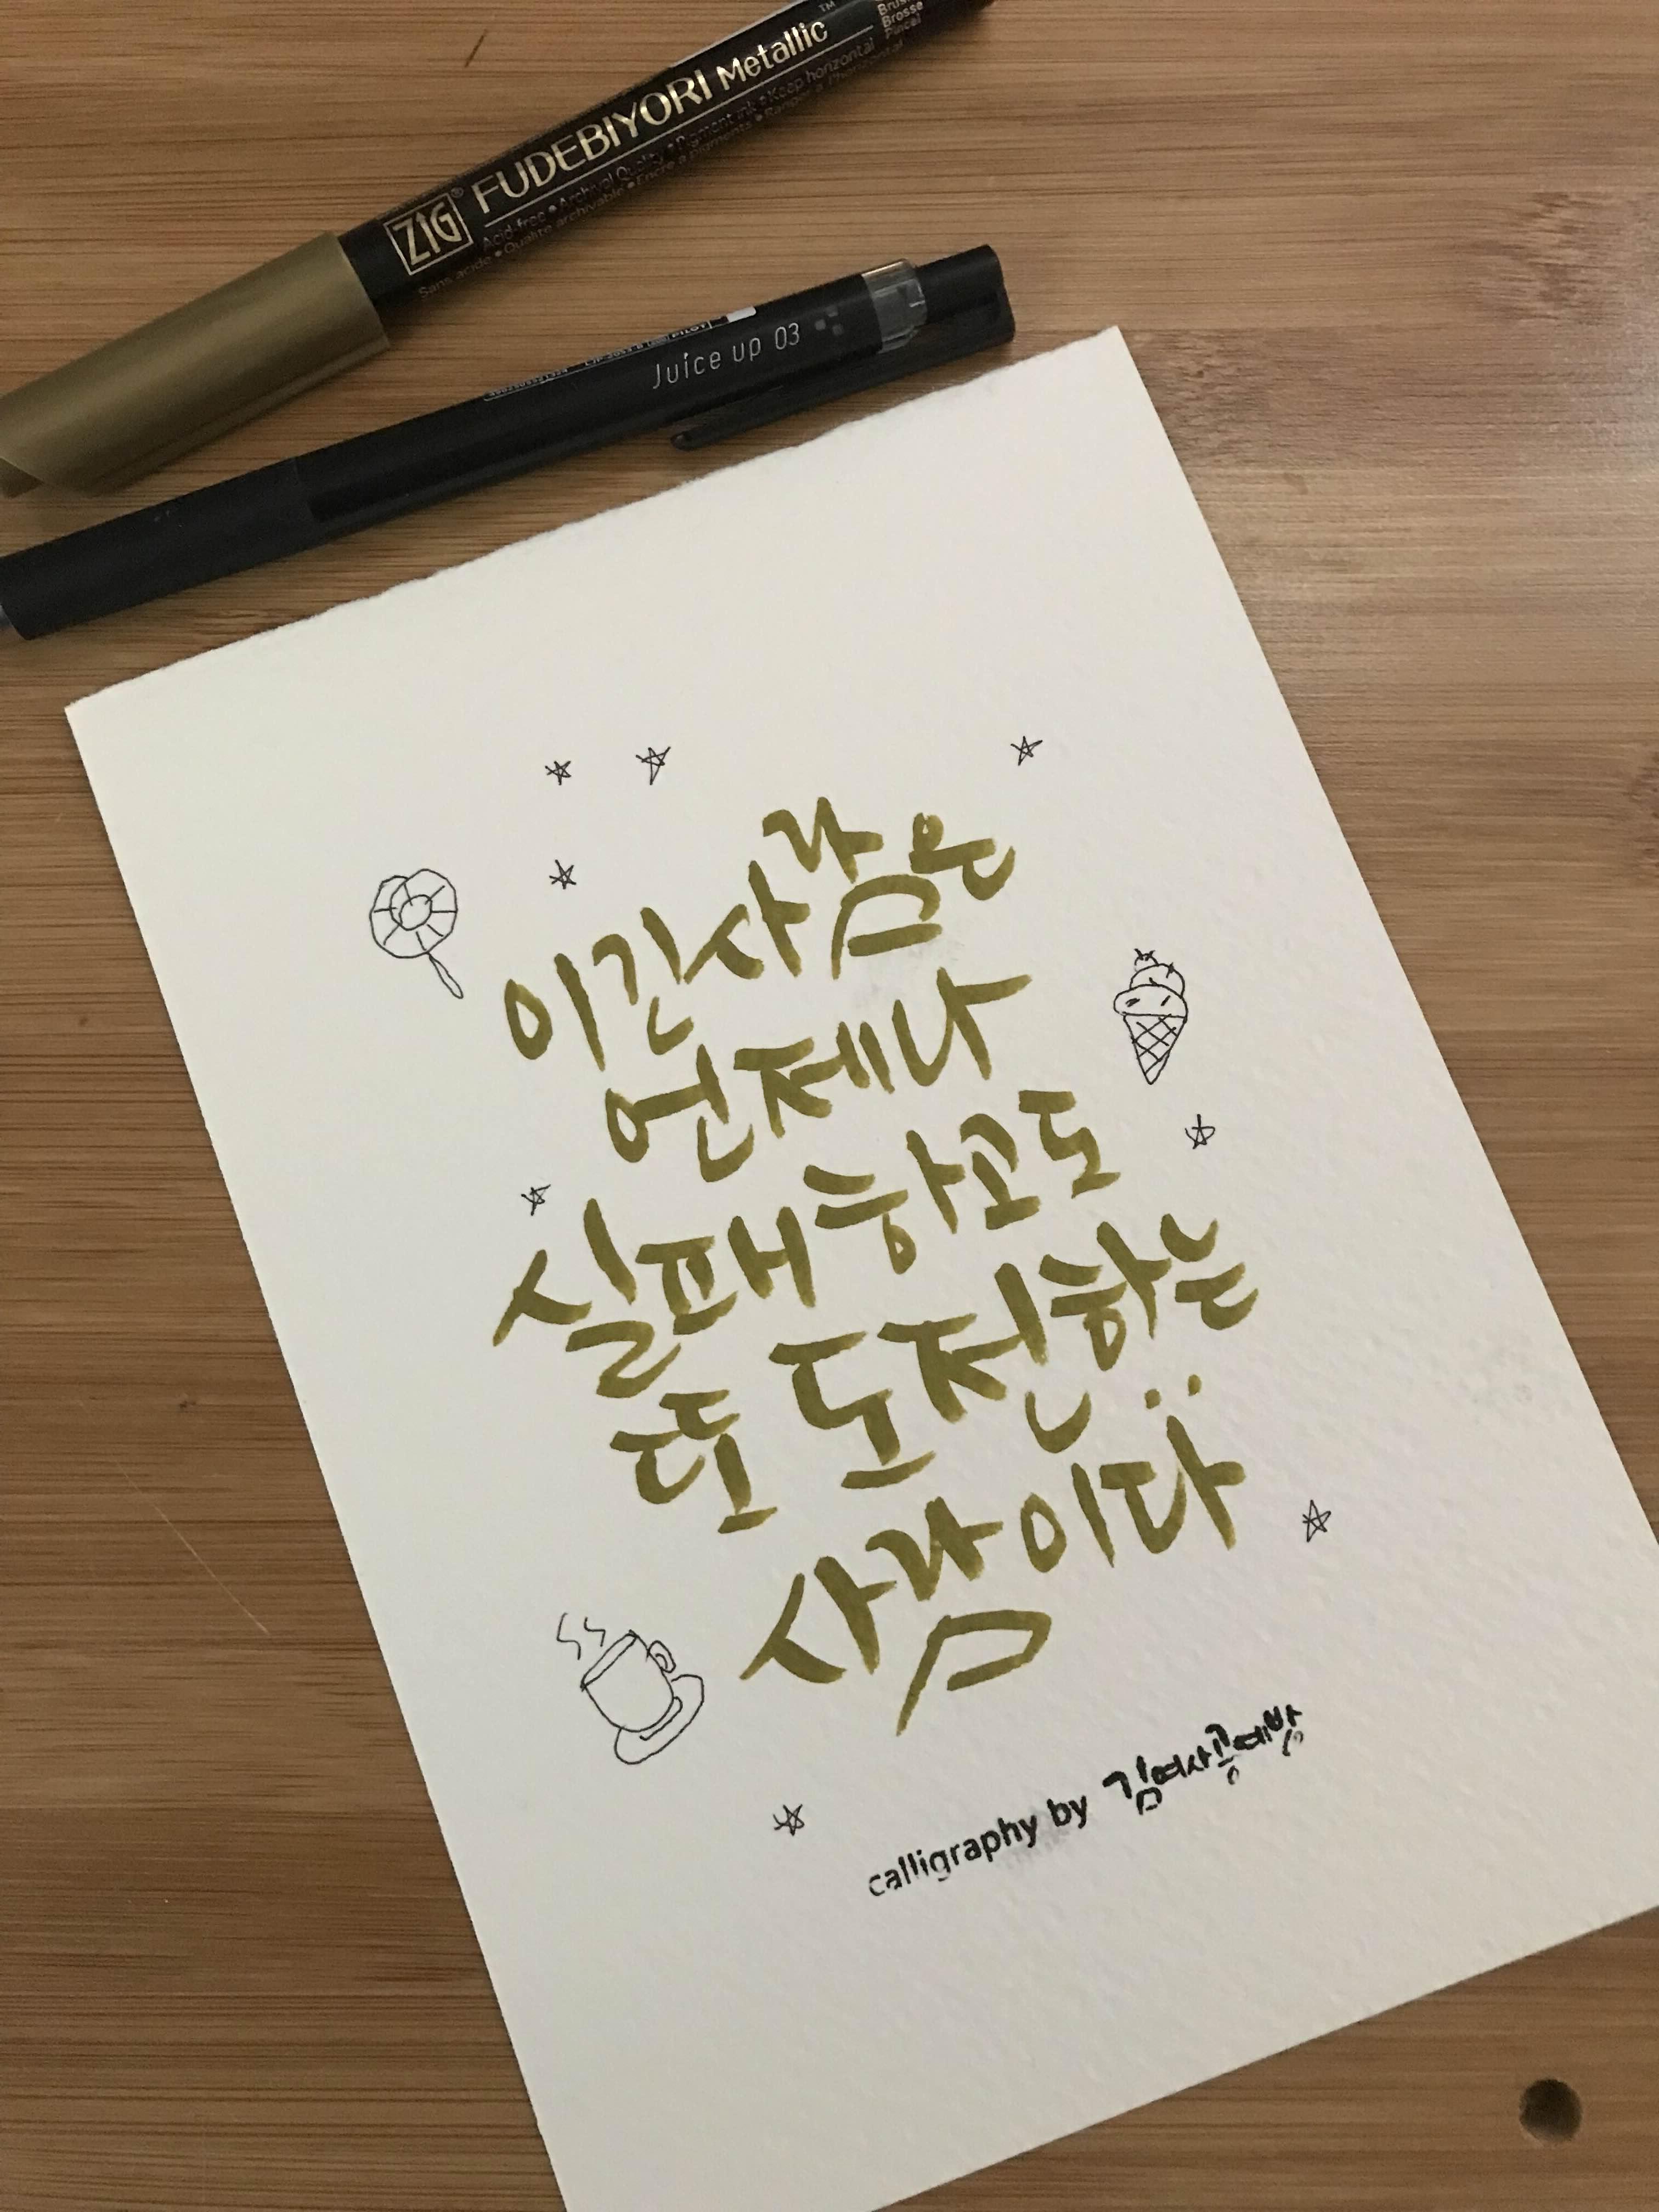 ZIG® FUDEBIYORI Metallic™
Brosse
Pincel
Acid-free • Archival Quality • Pigment ink • Keep horizontal
Sans acide • Qualité archivable • Encre à pigments • Ranger à l'horizontal
Juice up 03
PILOT
이긴사람은
언제나
실패하고도
또 도전하는
사람이다
calligraphy by 김여사공예방